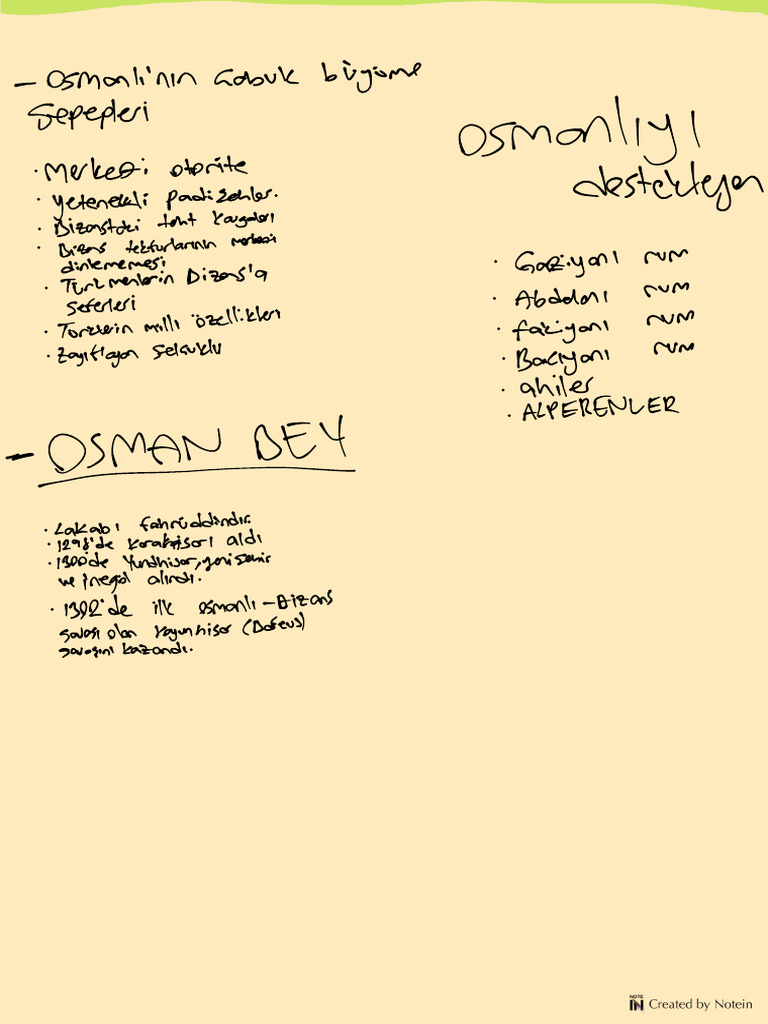 - Osmanlı'nın Çabuk büyüme
Sepepleri
· Merkezi otorite
· Yetenekli padişahlar.
· Bizanstaki taht kavgaları
· Bizans tekfurlarının merkezi
dinlememesi
· Türkmenlerin Bizans'a
seferleri
· Türklerin milli özellikleri
· Zayıflayan Selçuklu
Osmanlıyı
destekleyen
· Gaziyanı rum
· Abdalanı rum
· fakiyanı rum
· Bacıyanı rum
· ahiler
· ALPERENLER
- OSMAN BEY
· Lakabı fahrüddindir.
· 1298'de Karacahisarı aldı
· 1300'de Yundhisar, yenişehir
ve inegöl alındı.
· 1302'de ilk osmanlı-Bizans
savaşı olan koyunhisar (Bafeus)
savaşını kazandı.
NOTE IN Created by Notein